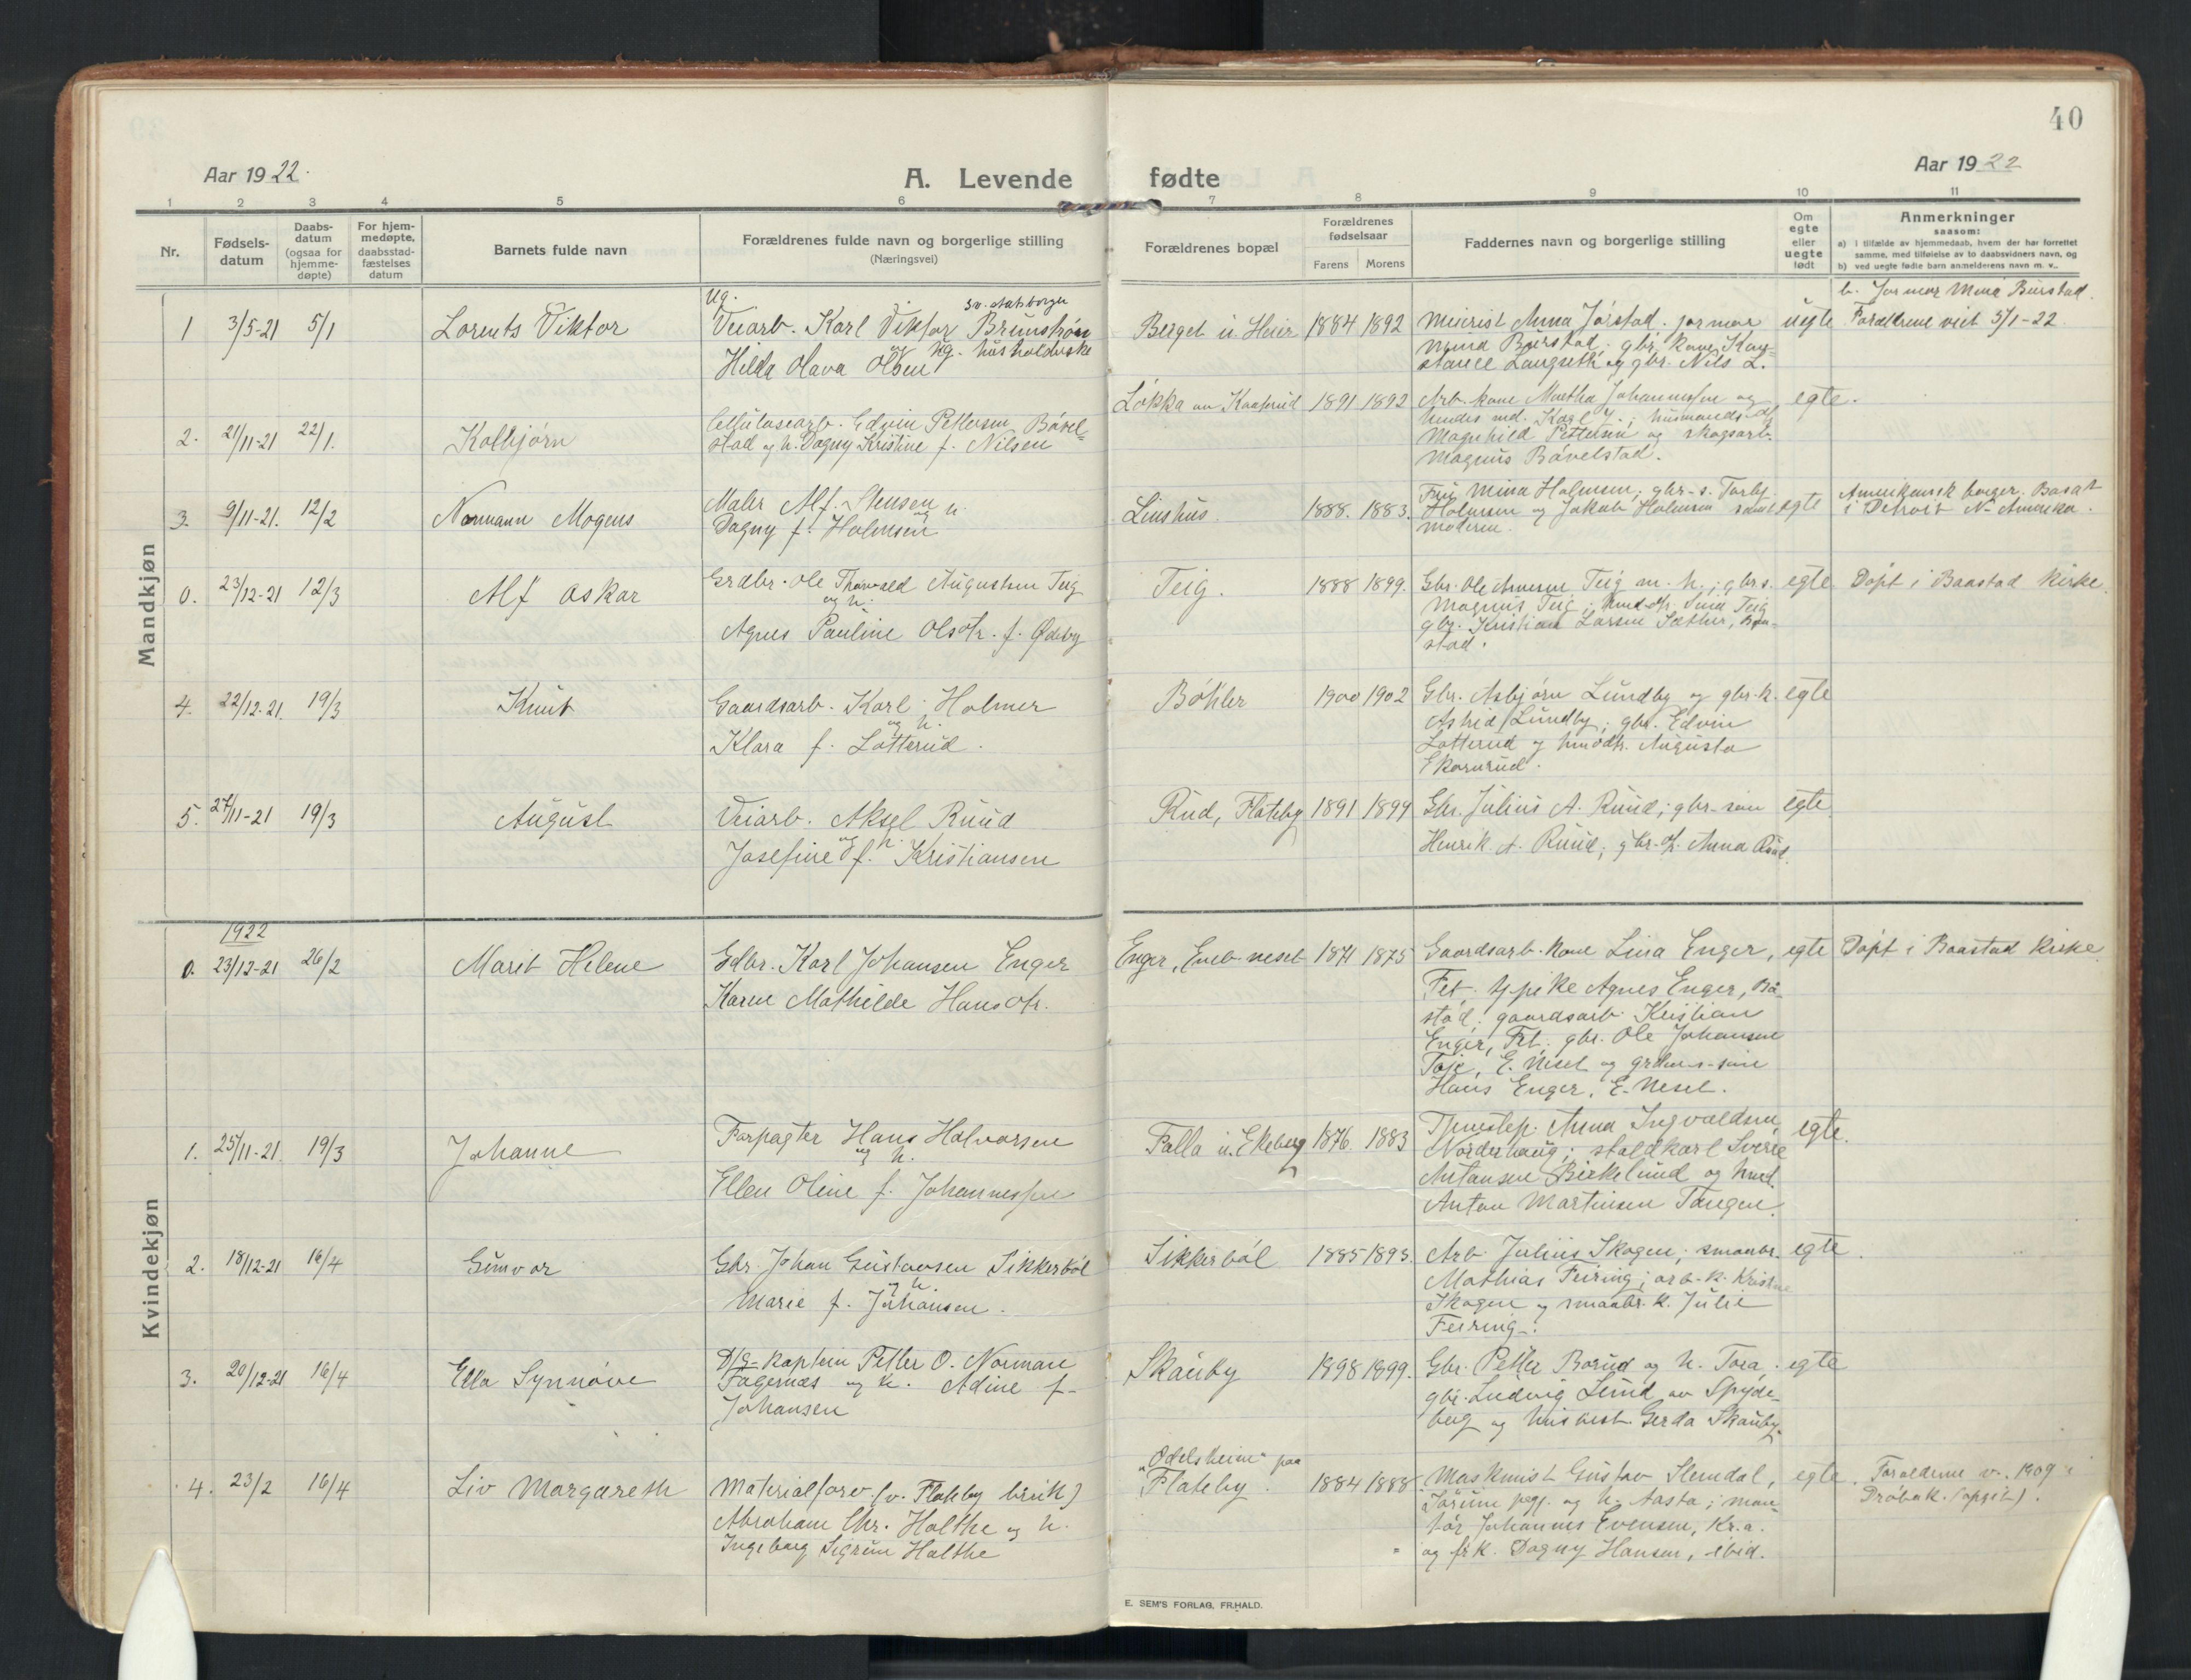 40
Aar 1922.
A. Levende fødte
Aar 1922
1 2 3 4 5 6 7 8 9 10 11
Nr.
Fødsels-
datum
Daabs-
datum
(ogsaa for
hjemme-
døpte)
For hjem-
medøpte,
daabsstad-
fæstelses
datum
Barnets fulde navn
Forældrenes fulde navn og borgerlige stilling
(Næringsvei)
Forældrenes bopæl
Forældrenes
fødselsaar
Farens Morens
Faddernes navn og borgerlige stilling
Om
egte
eller
uegte
født
Anmerkninger
saasom:
a) i tilfælde av hjemmedaab, hvem der har forrettet
samme, med tilføielse av to daabsvidners navn, og
b) ved uegte fødte barn anmelderens navn m. v..
Mandkjøn
1 3/5-21 5/1 Lorents Viktor
Ug. sv. statsborger
Veiarb. Karl Viktor Brunstrøm
og ug. husholderske
Hilda Olava Olsen
Berget u. Heier 1884 1892
Meierist Anna Jørstad. jormor
Mina Burstad. gbr. kone Kon-
stance Langseth og gbr. Nils L.
uegte
b. Jormor Mina Burstad.
Forældrene viet 5/1-22.
2. 21/11-21 22/1. Kolbjørn
Cellulosearb. Edvin Pettersen Båvel-
stad og h. Dagny Kristine f. Nilsen
Løkka av Kaaterud 1891 1892
Arb. kone Martha Johannessen og
hendes md. Karl J.; husmands-dt.
Magnhild Pettersen og skogsarb.
Magnus Båvelstad.
egte.
3. 9/11-21. 12/2 Normann Mogens
Maler Alf. Stensen
og h.
Dagny f. Holmsen
Linshus. 1888. 1883.
Fru Mina Holmsen; gbr-s. Torbj.
Holmsen og Jakob Holmsen samt
moderen.
egte
Amerikansk borger. Bosat
i Detroit N. Amerika.
0. 23/12-21 12/3 Alf Oskar
Grdbr. Ole Thorvald Augustsen Teig
og h.
Agnes Pauline Olsdtr. f. Ødeby
Teig. 1888 1899.
Gbr. Ole Arnesen Teig m. h.; gbrs.
Magnus Teig; hmd-dtr. Signe Teig
gbr. Kristian Larsen Sæther, Baa-
stad.
egte
Døpt i Baastad kirke.
4. 22/12-21. 19/3 Knut
Gaardsarb. Karl Holmer
og h.
Klara f. Lotterud.
Bøhler 1900 1902
Gbr. Asbjørn Lundby og gbr.k.
Astrid Lundby; gbr. Edvin
Lotterud og hmddtr. Augusta
Ekornrud.
egte
5. 27/11-21 19/3 August
Veiarb. Aksel Ruud
og h.
Josefine f. Kristiansen
Rud, Flateby 1891 1899
Gbr. Julius A. Ruud; gbr-søn
Henrik A. Ruud; gbr.dt. Anna Ruud.
egte.
Kvindekjøn
1922
0. 23/12-21 26/2 Marit Helene
Gdbr. Karl Johansen Enger
Karen Mathilde Hansdtr.
Enger, Eneb-neset 1871 1875
Gaardsarb. kone Lina Enger,
Fet. Tj.pike Agnes Enger, Bå-
stad; gaardsarb. Kristian
Enger, Fet; gbr. Ole Johansen
Toje, E. Neset og grdm-s-søn
Hans Enger, E-Neset.
egte
Døpt i Baastad kirke.
1. 25/11-21. 19/3 Johanne
Forpagter Hans Halvorsen
og h.
Ellen Oline f. Johannessen
Falla u. Ekeberg 1876. 1883
Tjenestep. Anna Ingvaldsen
Norderhaug; staldkarl Sverre
Antonsen Birkelund og hmd.
Anton Martinsen Tangen.
egte.
2. 18/12-21 16/4 Gunvor
Gbr. Johan Gustavsen Sikkerbøl
og h.
Marie f. Johansen.
Sikkerbøl 1885 1893.
Arb. Julius Skogen; smaabr.
Mathias Feiring; arb-k. Kristine
Skogen og smaabr. k. Julie
Feiring.
egte.
3. 20/12-21 16/4 Ella Synnøve
D/S-kaptein Petter O. Norman
Fagernæs og h. Adine f.
Johansen
Skauby 1898 1899.
Gbr. Petter Borud og h. Tora;
gbr. Ludvig Lund av Spyde-
berg og husbest. Gerda Skauby.
egte
4. 23/2 16/4 Liv Margareth
Materialforv. (v. Flateby bruk)
Abraham Chr. Holthe og h.
Ingeborg Sigrun Holthe
„Odelsheim" paa
Flateby. 1884 1888
Maskinist Gustav Stendal,
og h. Aasta; mon-
tør Johannes Evensen, Kr.a.
og frk. Dagny Hansen, ibid.
egte.
Forælderne v. 1909 i
Drøbak. (opgit).
E. SEM'S FORLAG, FR.HALD.